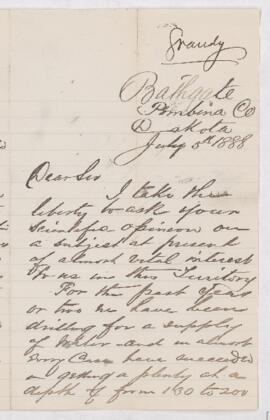 Grandy
Bathgate
Pembina Co
Dakota
July 5th 1888
Dear Sir
I take the
liberty to ask your
Scientific opinion on
a subject at present
of almost vital interest
to us in this Territory
For the past year
or two we have been
drilling for a supply
of Water and in almost
every Case have succeeded
in getting a plenty at a
depth of from 130 to 200